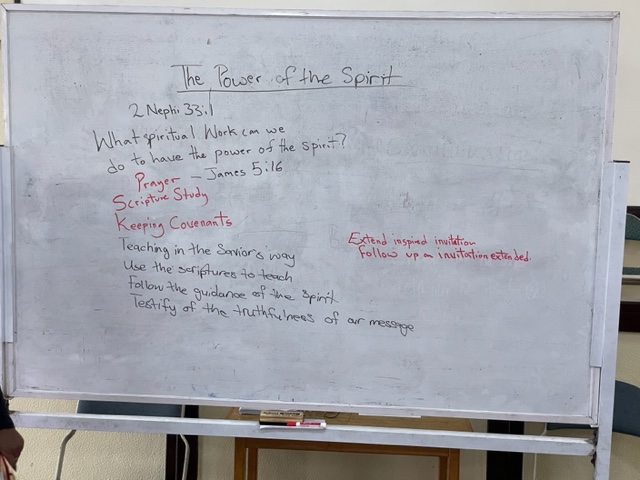 The Power of the Spirit
2 Nephi 33:1
What spiritual Work can we
do to have the power of the spirit?
Prayer – James 5:16
Scripture Study
Keeping Covenants
Teaching in the Savior's way
Use the scriptures to teach
Follow the guidance of the spirit
Testify of the truthfulness of our message
Extend inspired invitation
Follow up on invitation extended.